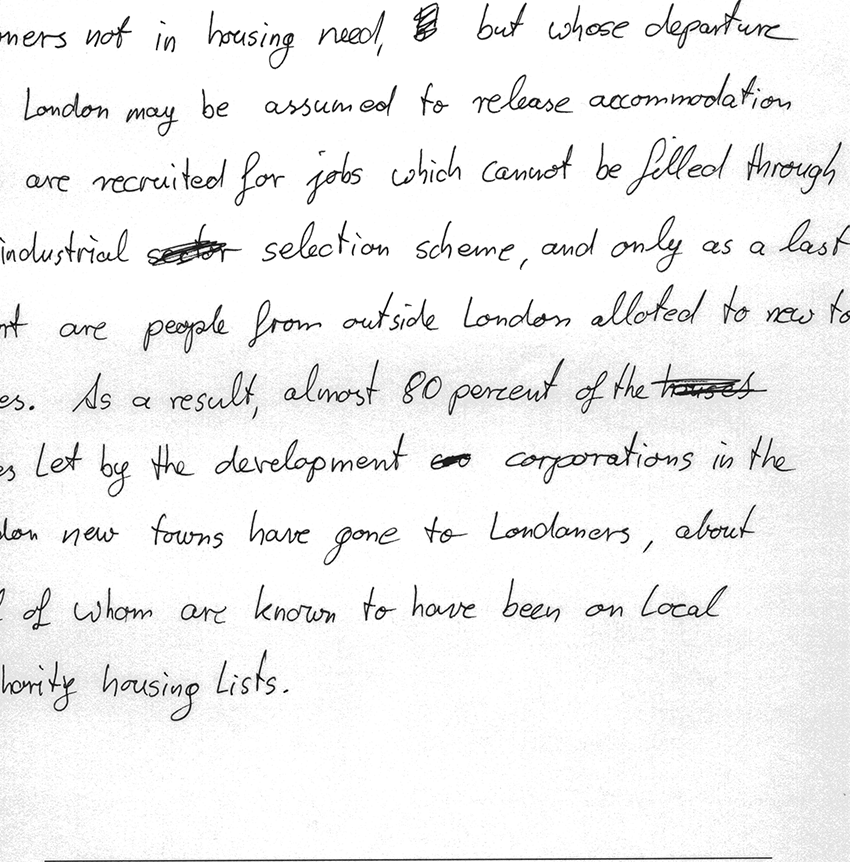 mers not in housing need, but whose departure
London may be assumed to release accommodation
are recruited for jobs which cannot be filled through
industrial sector selection scheme, and only as a last
nt are people from outside London alloted to new to
es. As a result, almost 80 percent of the houses
es Let by the development corporations in the
don new towns have gone to Londoners, about
of whom are known to have been on Local
hority housing Lists.